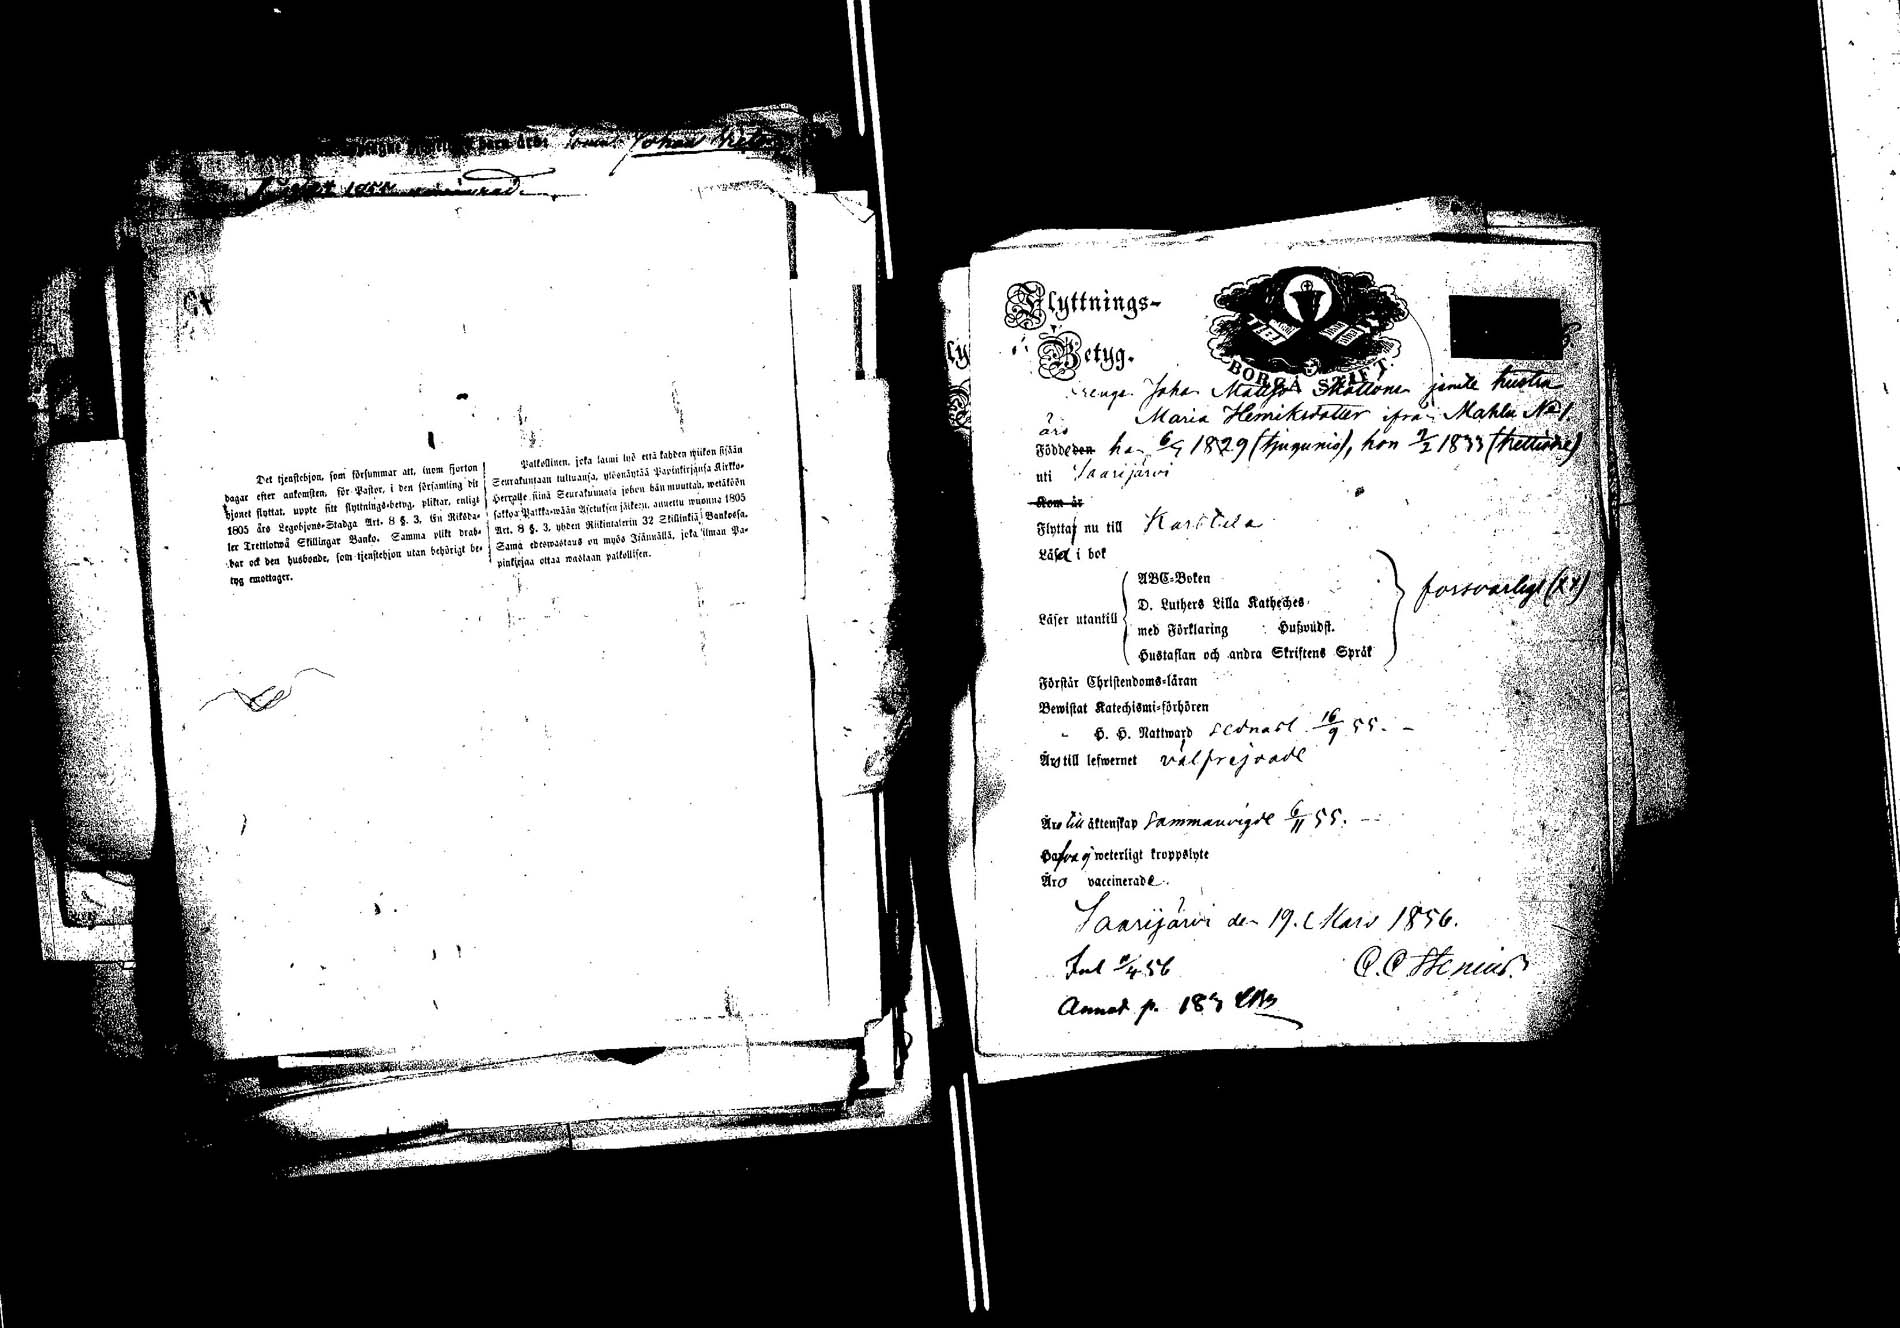 barn äro: Johan
Det tjenstehjon, som försummar att, inom fjorton
dagar efter ankomsten, för Pastor, i den församling dit
hjonet flyttat, uppte sitt flyttnings-betyg, pliktar, enligt
1805 års Legohjons-Stadga Art. 8 §. 3, En Riksda-
ler Trettiotwå Skillingar Banko. Samma plikt drab-
bar ock den husbonde, som tjenstehjon utan behörigt be-
tyg emottager.
Palkollinen, joka laimi lyö että kahden wiikon sisään
Seurakuntaan tultuansa, ylösnäyttää Papinkirjansa Kirkko-
Herralle siinä Seurakunnasa johon hän muuttaa, wetäköön
sakkoa Palkka-wään Asetuksen jälkeen, annettu wuonna 1805
Art. 8 §. 3, yhden Riikintalerin 32 Skillinkiä Bankossa.
Sama edeswastaus on myös Isännällä, joka ilman Pa-
pinkirjaa ottaa wastaan palkollisen.
Flyttnings-
Betyg.
BORGÅ STIFT.
Johan Mattss Skottonen jemte hustru
Maria Henriksdotter ifrån Mahlu No 1
äro
Födde den han 6/4 1829 (tjugunio), hon 2/2 1833 (trettiotre)
uti Saarijärvi
Kom år
Flytta nu till Karstula
Läsa i bok
ABC-Boken
D. Luthers Lilla Katheches
Läser utantill
med Förklaring Hußwudst.
försvarligt (xx)
Hustaflan och andra Skriftens Språk
Förstår Christendoms-läran
Bewistat Katechismi-förhören
" H. H. Nattward sednast 16/9 55.
Äro till lefwernet välfrejdade
Äro till äktenskap Sammanvigde 6/11 55.
Hafva ej weterligt kroppslyte
Äro vaccinerade.
Saarijärvi den 19. Mars 1856.
Inl 2/4 56
C. C. Stenius.
Annot. p. 183